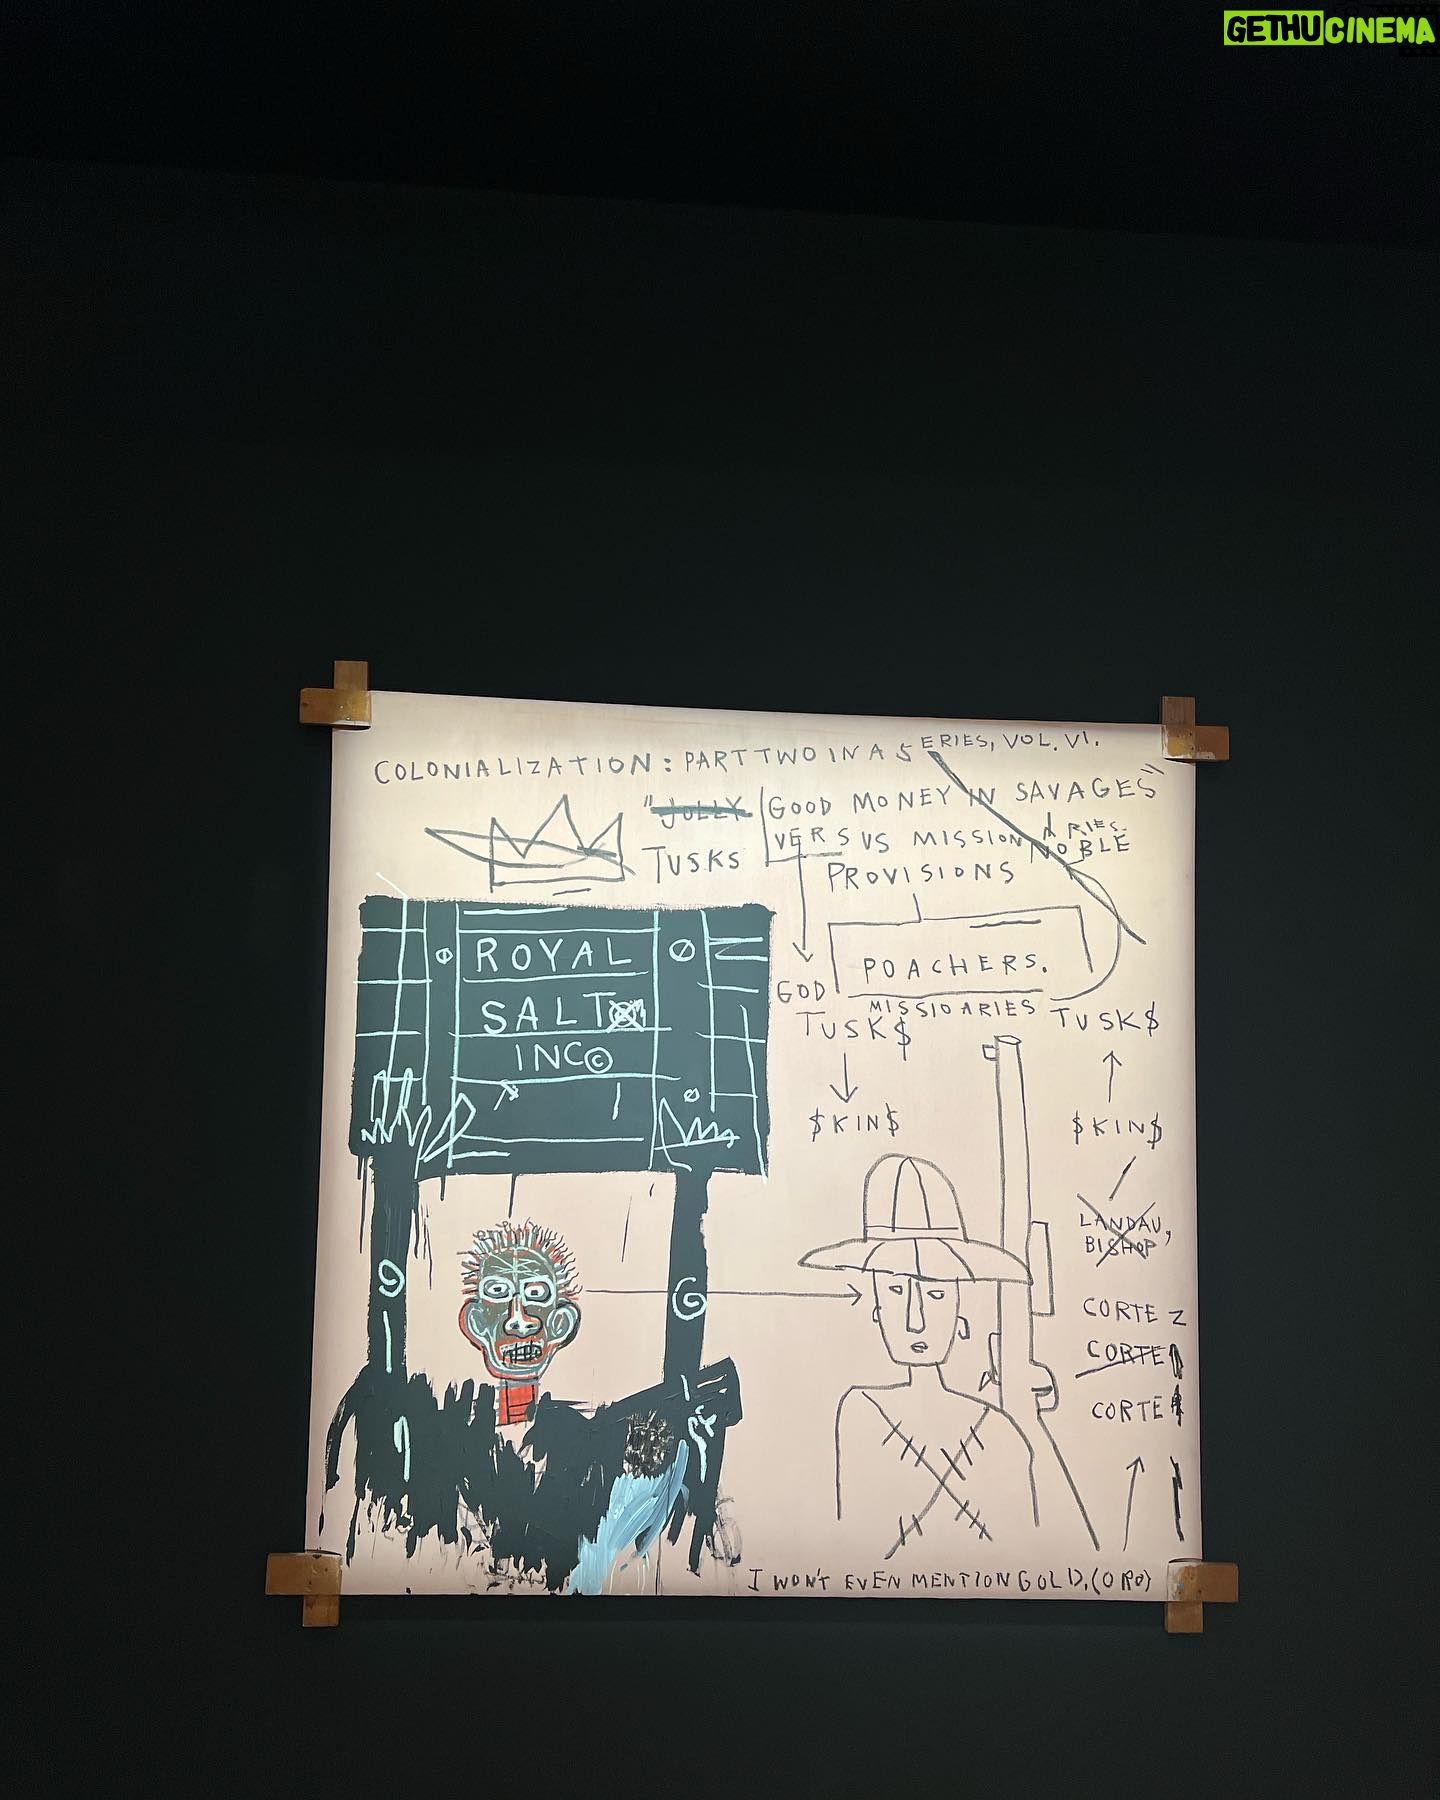 GETHUCINEMA
COLONIALIZATION: PART TWO IN A SERIES, VOL. VI.
"JOLLY GOOD MONEY IN SAVAGES"
TUSKS
VERSUS MISSIONARIES.
NOBLE
PROVISIONS
POACHERS.
MISSIOARIES
GOD
TUSK$
TUSK$
$KIN$
$KIN$
ROYAL
SALT
INC©
LANDAU,
BISHOP
CORTEZ
CORTE
CORTE
I WON'T EVEN MENTION GOLD, (ORO)